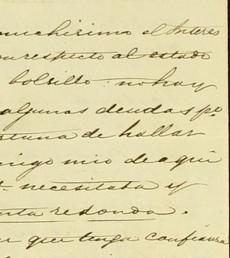 muchisimo el Interes
con respecto al estado
bolsillo no hay
algunas deudas pº
fortuna de hallar
amigo mio de aqui
necesitaba y
cuenta redonda.
que tenga confianza